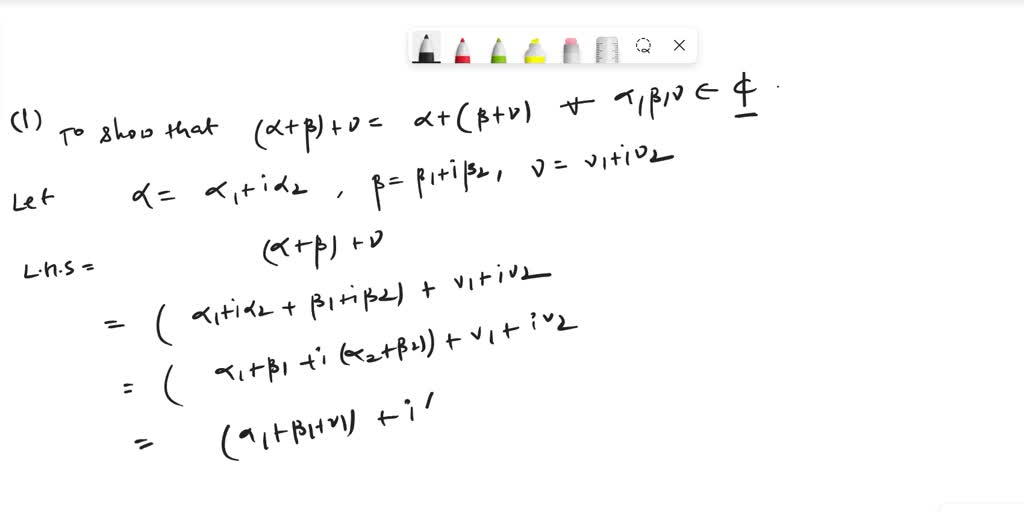 (1) To show that (α+β)+ν = α+(β+ν) ∀ α,β,ν ∈ ₵.
Let α = α₁+iα₂, β = β₁+iβ₂, ν = ν₁+iν₂
L.H.S = (α+β)+ν
= (α₁+iα₂ + β₁+iβ₂) + ν₁+iν₂
= (α₁+β₁ +i (α₂+β₂)) + ν₁ + iν₂
= (α₁+β₁+ν₁) + i